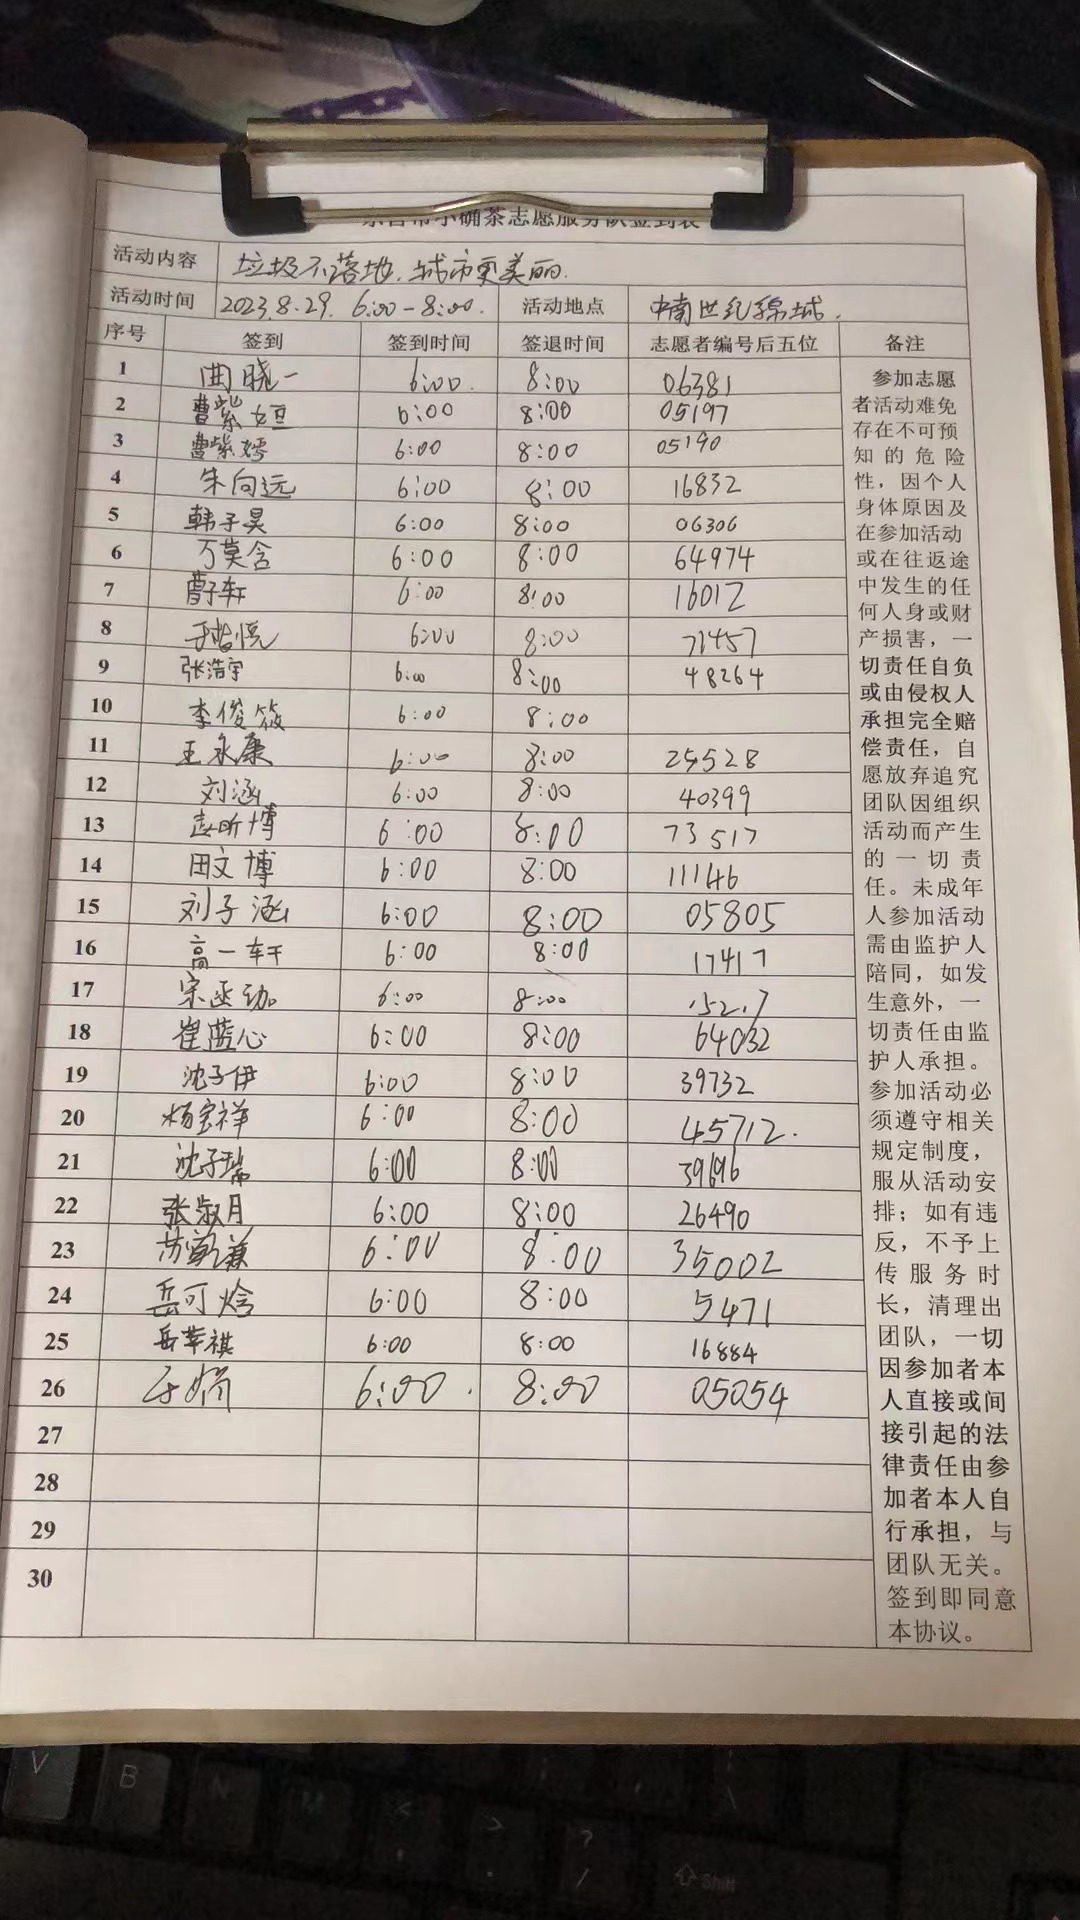 小确茶志愿服务队签到表
活动内容 垃圾不落地.城市更美丽.
活动时间 2023.8.29. 6:00-8:00. 活动地点 中南世纪锦城.
序号 签到 签到时间 签退时间 志愿者编号后五位 备注
1 曲晓一 6:00. 8:00 06381
2 曹紫妲 6:00 8:00 05197
3 曹紫嫣 6:00 8:00 05190
4 朱向远 6:00 8:00 16832
5 韩子昊 6:00 8:00 06306
6 万莫含 6:00 8:00 64974
7 曹子轩 6:00 8:00 16012
8 6:00 8:00 71457
9 张浩宇 6:00 8:00 48264
10 李俊筱 6:00 8:00
11 王永康 6:00 8:00 25528
12 刘涵 6:00 8:00 40399
13 赵昕博 6:00 8:00 73517
14 田文博 6:00 8:00 11146
15 刘子涵 6:00 8:00 05805
16 高一轩 6:00 8:00 17417
17 6:00 8:00
18 崔蓝心 6:00 8:00 64032
19 沈子伊 6:00 8:00 39732
20 杨宝祥 6:00 8:00 45712.
21 沈子瑞 6:00 8:00 39696
22 张淑月 6:00 8:00 26490
23 6:00 8:00 35002
24 岳可焓 6:00 8:00 5471
25 岳莘祺 6:00 8:00 16884
26 于娟 6:00. 8:00 05054
27
28
29
30
参加志愿
者活动难免
存在不可预
知的危险
性，因个人
身体原因及
在参加活动
或在往返途
中发生的任
何人身或财
产损害，一
切责任自负
或由侵权人
承担完全赔
偿责任，自
愿放弃追究
团队因组织
活动而产生
的一切责
任。未成年
人参加活动
需由监护人
陪同，如发
生意外，一
切责任由监
护人承担。
参加活动必
须遵守相关
规定制度，
服从活动安
排；如有违
反，不予上
传服务时
长，清理出
团队，一切
因参加者本
人直接或间
接引起的法
律责任由参
加者本人自
行承担，与
团队无关。
签到即同意
本协议。
V
B
N
M
<
>
?
/
Shift